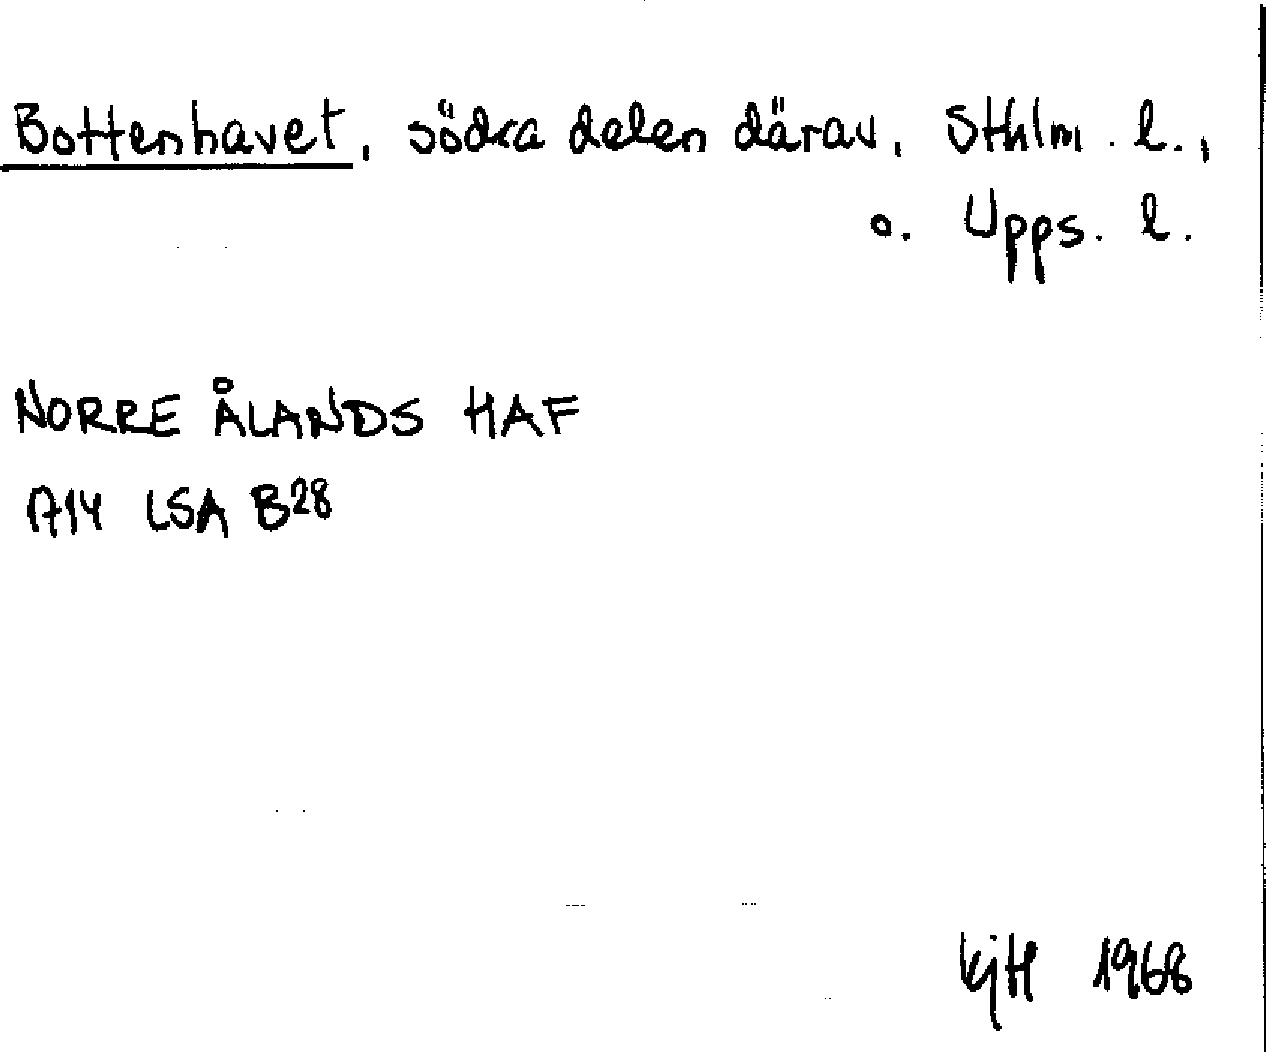 Bottenhavet, södra delen därav, Sthlm. l.,
o. Upps. l.
NORRE ÅLANDS HAF
A14 LSA B28
KjH 1968